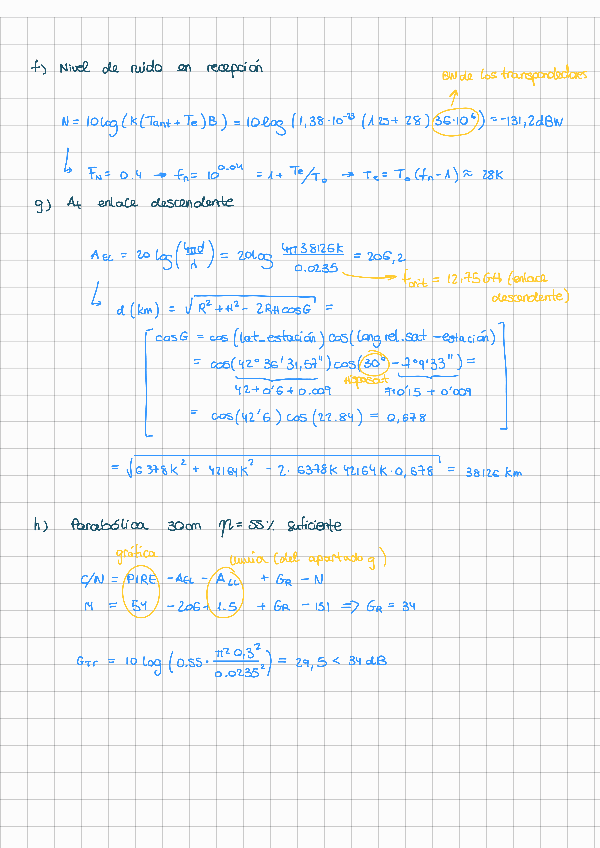 f) Nivel de ruido en recepción
BW de los transpondedores
N = 10 log (K(Tant + Te)B) = 10 log (1,38·10⁻²³ (125 + 28) 36·10⁶) = -131,2 dBW
F_N = 0.4 → f_n = 10^0.04 = 1 + Te/T₀ → Te = T₀(f_n - 1) ≈ 28K
g) At enlace descendente
A_EL = 20 log (4πd/λ) = 20 log 4π38126K/0.0235 = 206,2
f_crit = 12,75GH (enlace descendente)
d (km) = √(R² + H² - 2RH cosG) =
cosG = cos (lat_estación) cos(long rel. sat - estación)
= cos(42° 36' 31,57") cos(30° - 7°9'33") =
42 + 0'6 + 0.009
Hispasat
7+0'15 + 0'009
= cos(42'6) cos(22.84) = 0,678
= √(6378K² + 42164K² - 2· 6378K 42164K·0,678) = 38126 km
h) Parabólica 30cm η = 55% suficiente
gráfica
(del apartado g)
C/N = PIRE - A_EL - A_LL + G_R - N
= 54 - 206 + 1.5 + G_R - 151 => G_R = 34
10 log (0.55 · π² 0,3²/0.0235²) = 29,5 < 34 dB